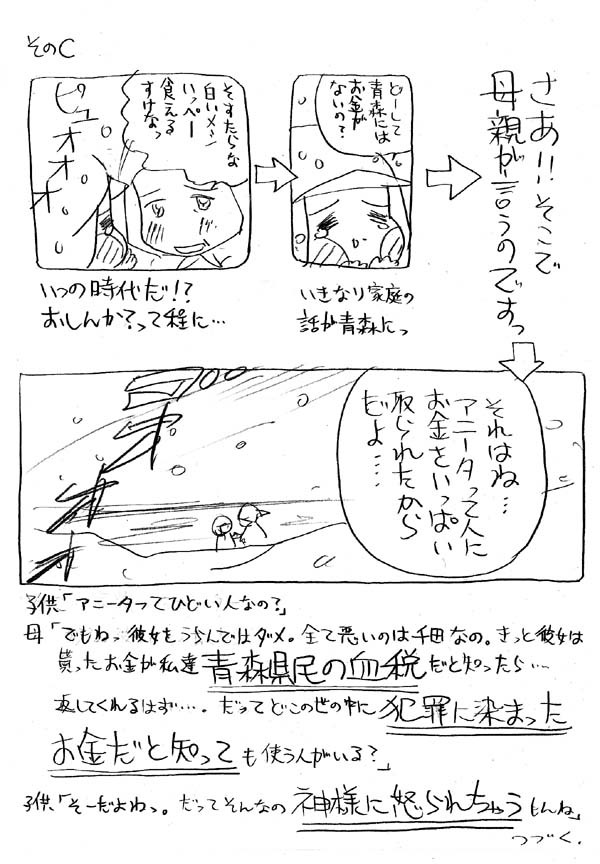 そのC
さあ!!そこで
母親が言うのですっ
どーして
青森には
お金が
ないの?
いきなり家庭の
話が青森にっ
そすたらな
白いメシ
いっぺー
食える
すけなっ
ピュオオオ
いつの時代だ!?
おしんか?って程に…
それはね…
アニータって人に
お金をいっぱい
取られたから
だよ…
子供「アニータってひどい人なの?」
母「でもねっ彼女をうらんではダメ。全て悪いのは千田なの。きっと彼女は
貰ったお金が私達青森県民の血税だと知ったら…
返してくれるはず…。だってどこの世の中に犯罪に染まった
お金だと知っても使う人がいる?」
子供「そーだよねっ。だってそんなの神様に怒られちゃうもんね」
つづく.